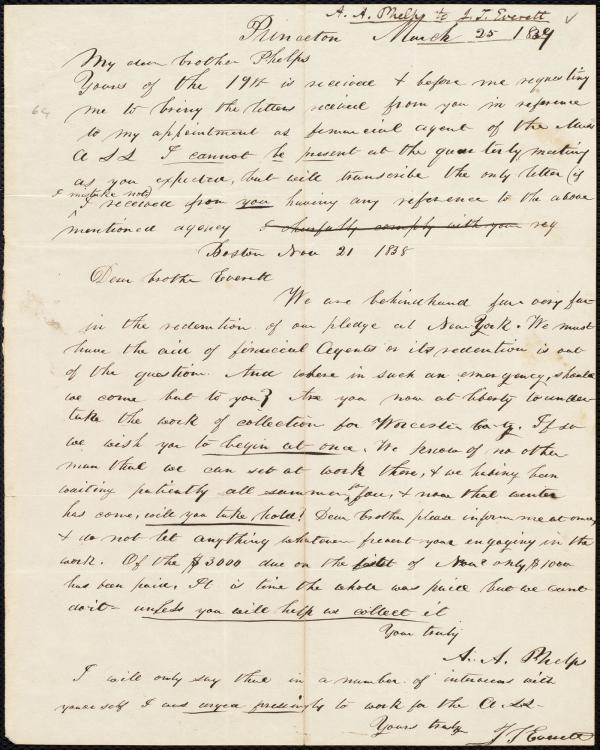 A. A. Phelps to J. T. Everett
Princeton March 25 1839
My dear brother Phelps
Yours of the 19th is received & before me requesting
me to bring the letters received from you in reference
to my appointment as financial agent of the Mass
A S S I cannot be present at the quarterly meeting
as you expected, but will transcribe the only letter (if
I mistake not)
I received from you having any reference to the above
mentioned agency I cheerfully comply with your req
Boston Nov 21 1838
Dear brother Everett
We are behindhand far very far
in the redemtion of our pledge at New York. We must
have the aid of finacial Agents or its redemtion is out
of the question. And where in such an emergency, should
we come but to you? Are you now at liberty to under
take the work of collection for Worcester Conty. If so
we wish you to begin at once. We know of no other
man that we can set at work there, & we having been
waiting patiently all summer, for you, & now that winter
has come, will you take hold! Dear brother please inform me at once,
& do not let anything whatever prevent your engaging in the
work. Of the $3000 due on the first of Nov only $1000
has been paid. It is time the whole was paid but we cant
do it – unless you will help us collect it
Your truly
A. A. Phelps
I will only say that in a number of interviews with
yourself I was urged pressingly to work for the A S S.
Yours truly
J T Everett
64